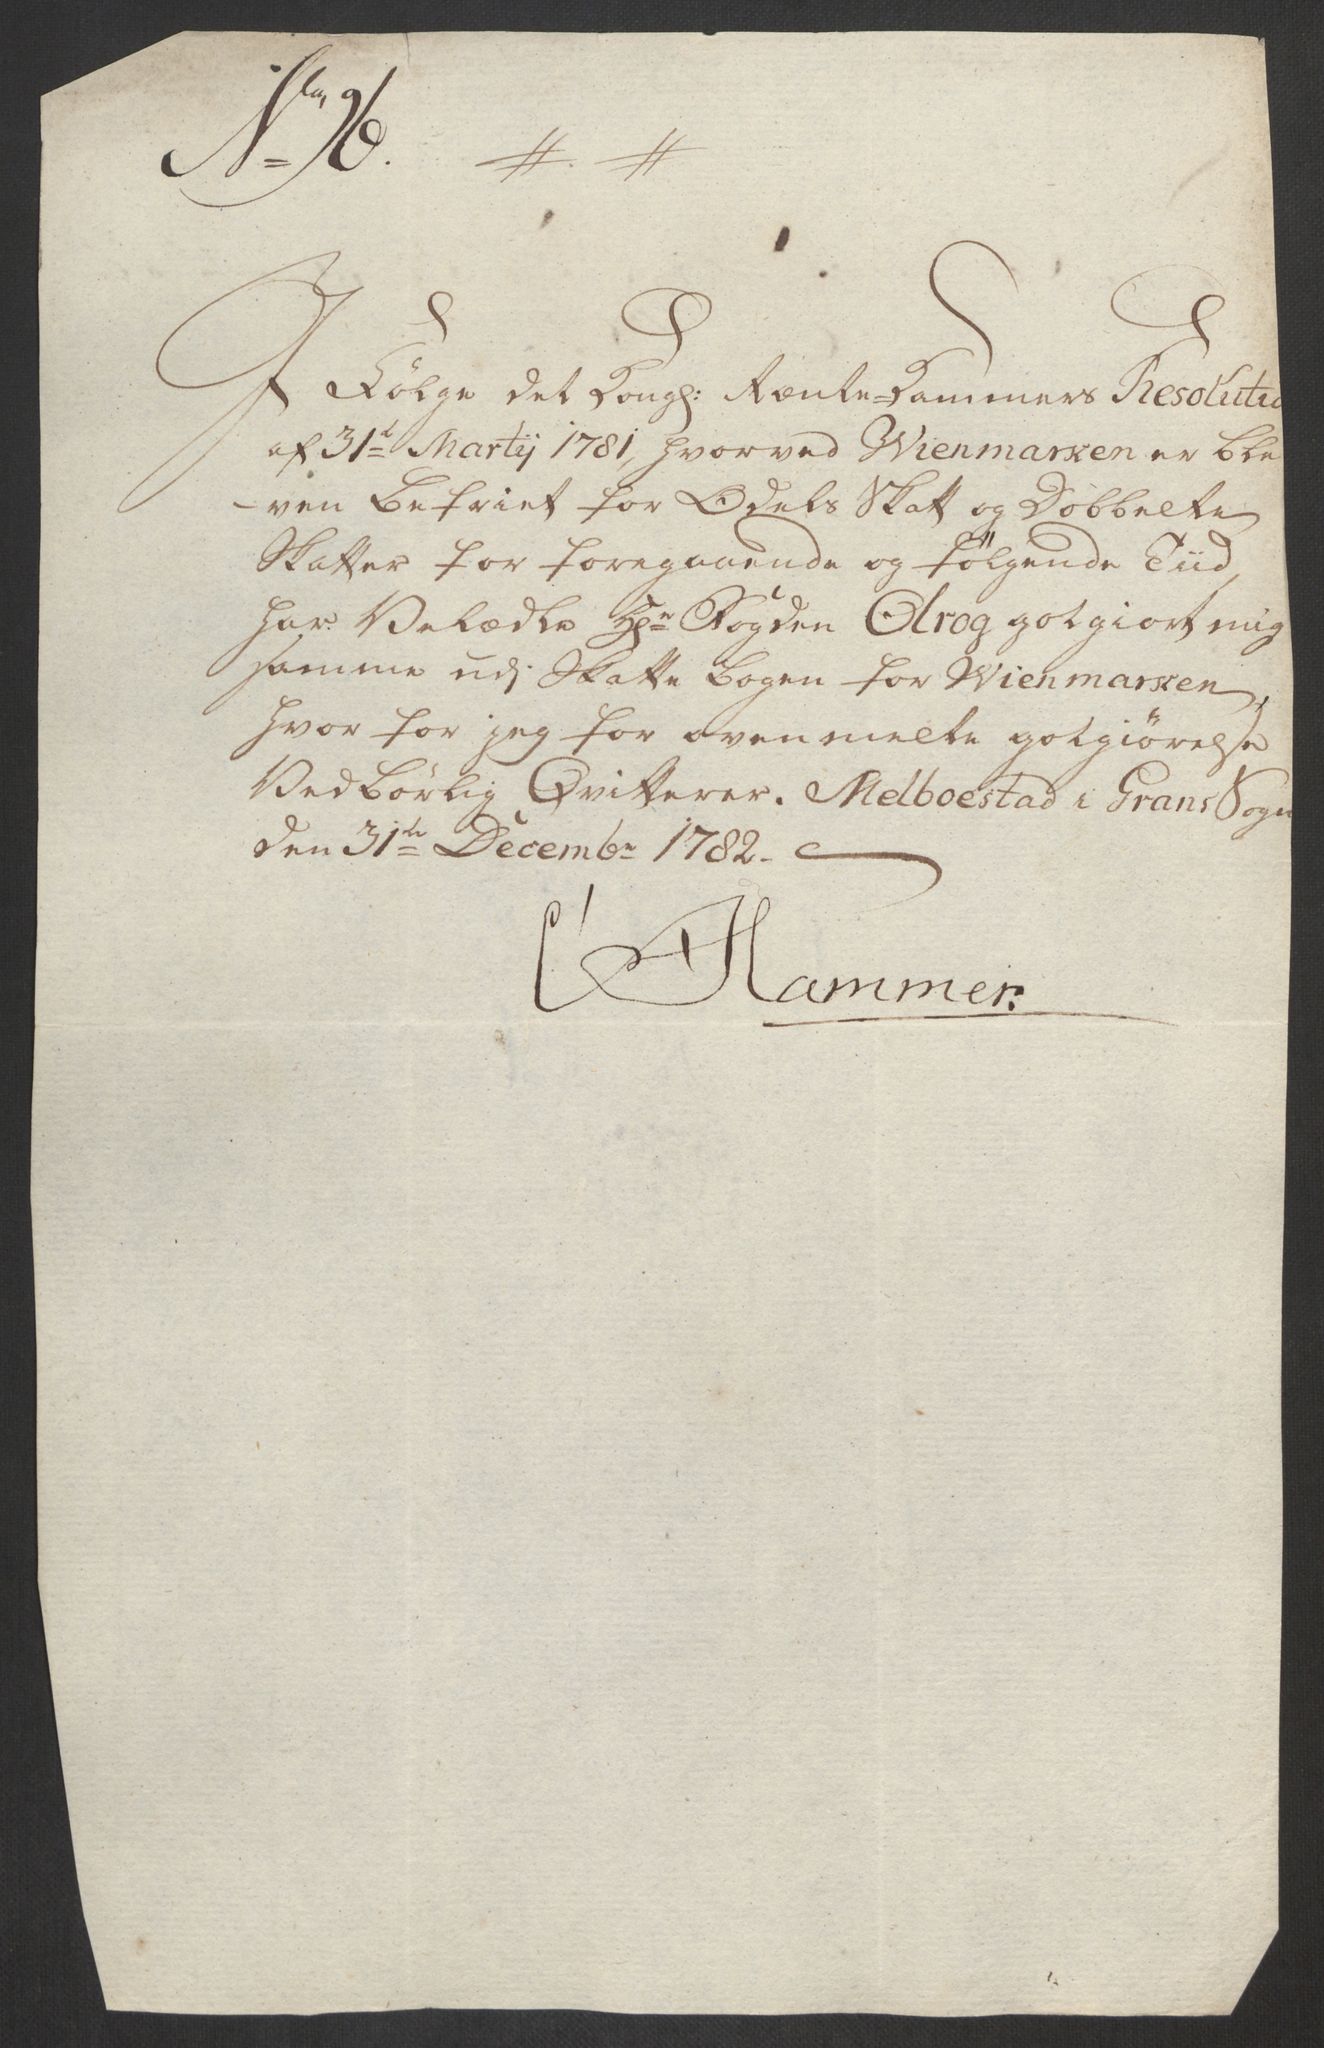 No 96.
I Følge det Kongl: Rænte-Kammers Resolutio
af 31te Martij 1781, hvorved Wienmarken er ble
-ven befriet for Odels Skatt og Dobbelte
Skatter for foregaaende og følgende Tiid,
har Velædle Hr Fogden Olrog gotgiort mig
samme udi Skatte bogen for Wienmarken,
hvor for jeg for ovenmelte gotgiørelse
Vedbørlig Qvitterer. Melboestad i Grans Sogn
den 31te Decembr 1782.
C Hammer.